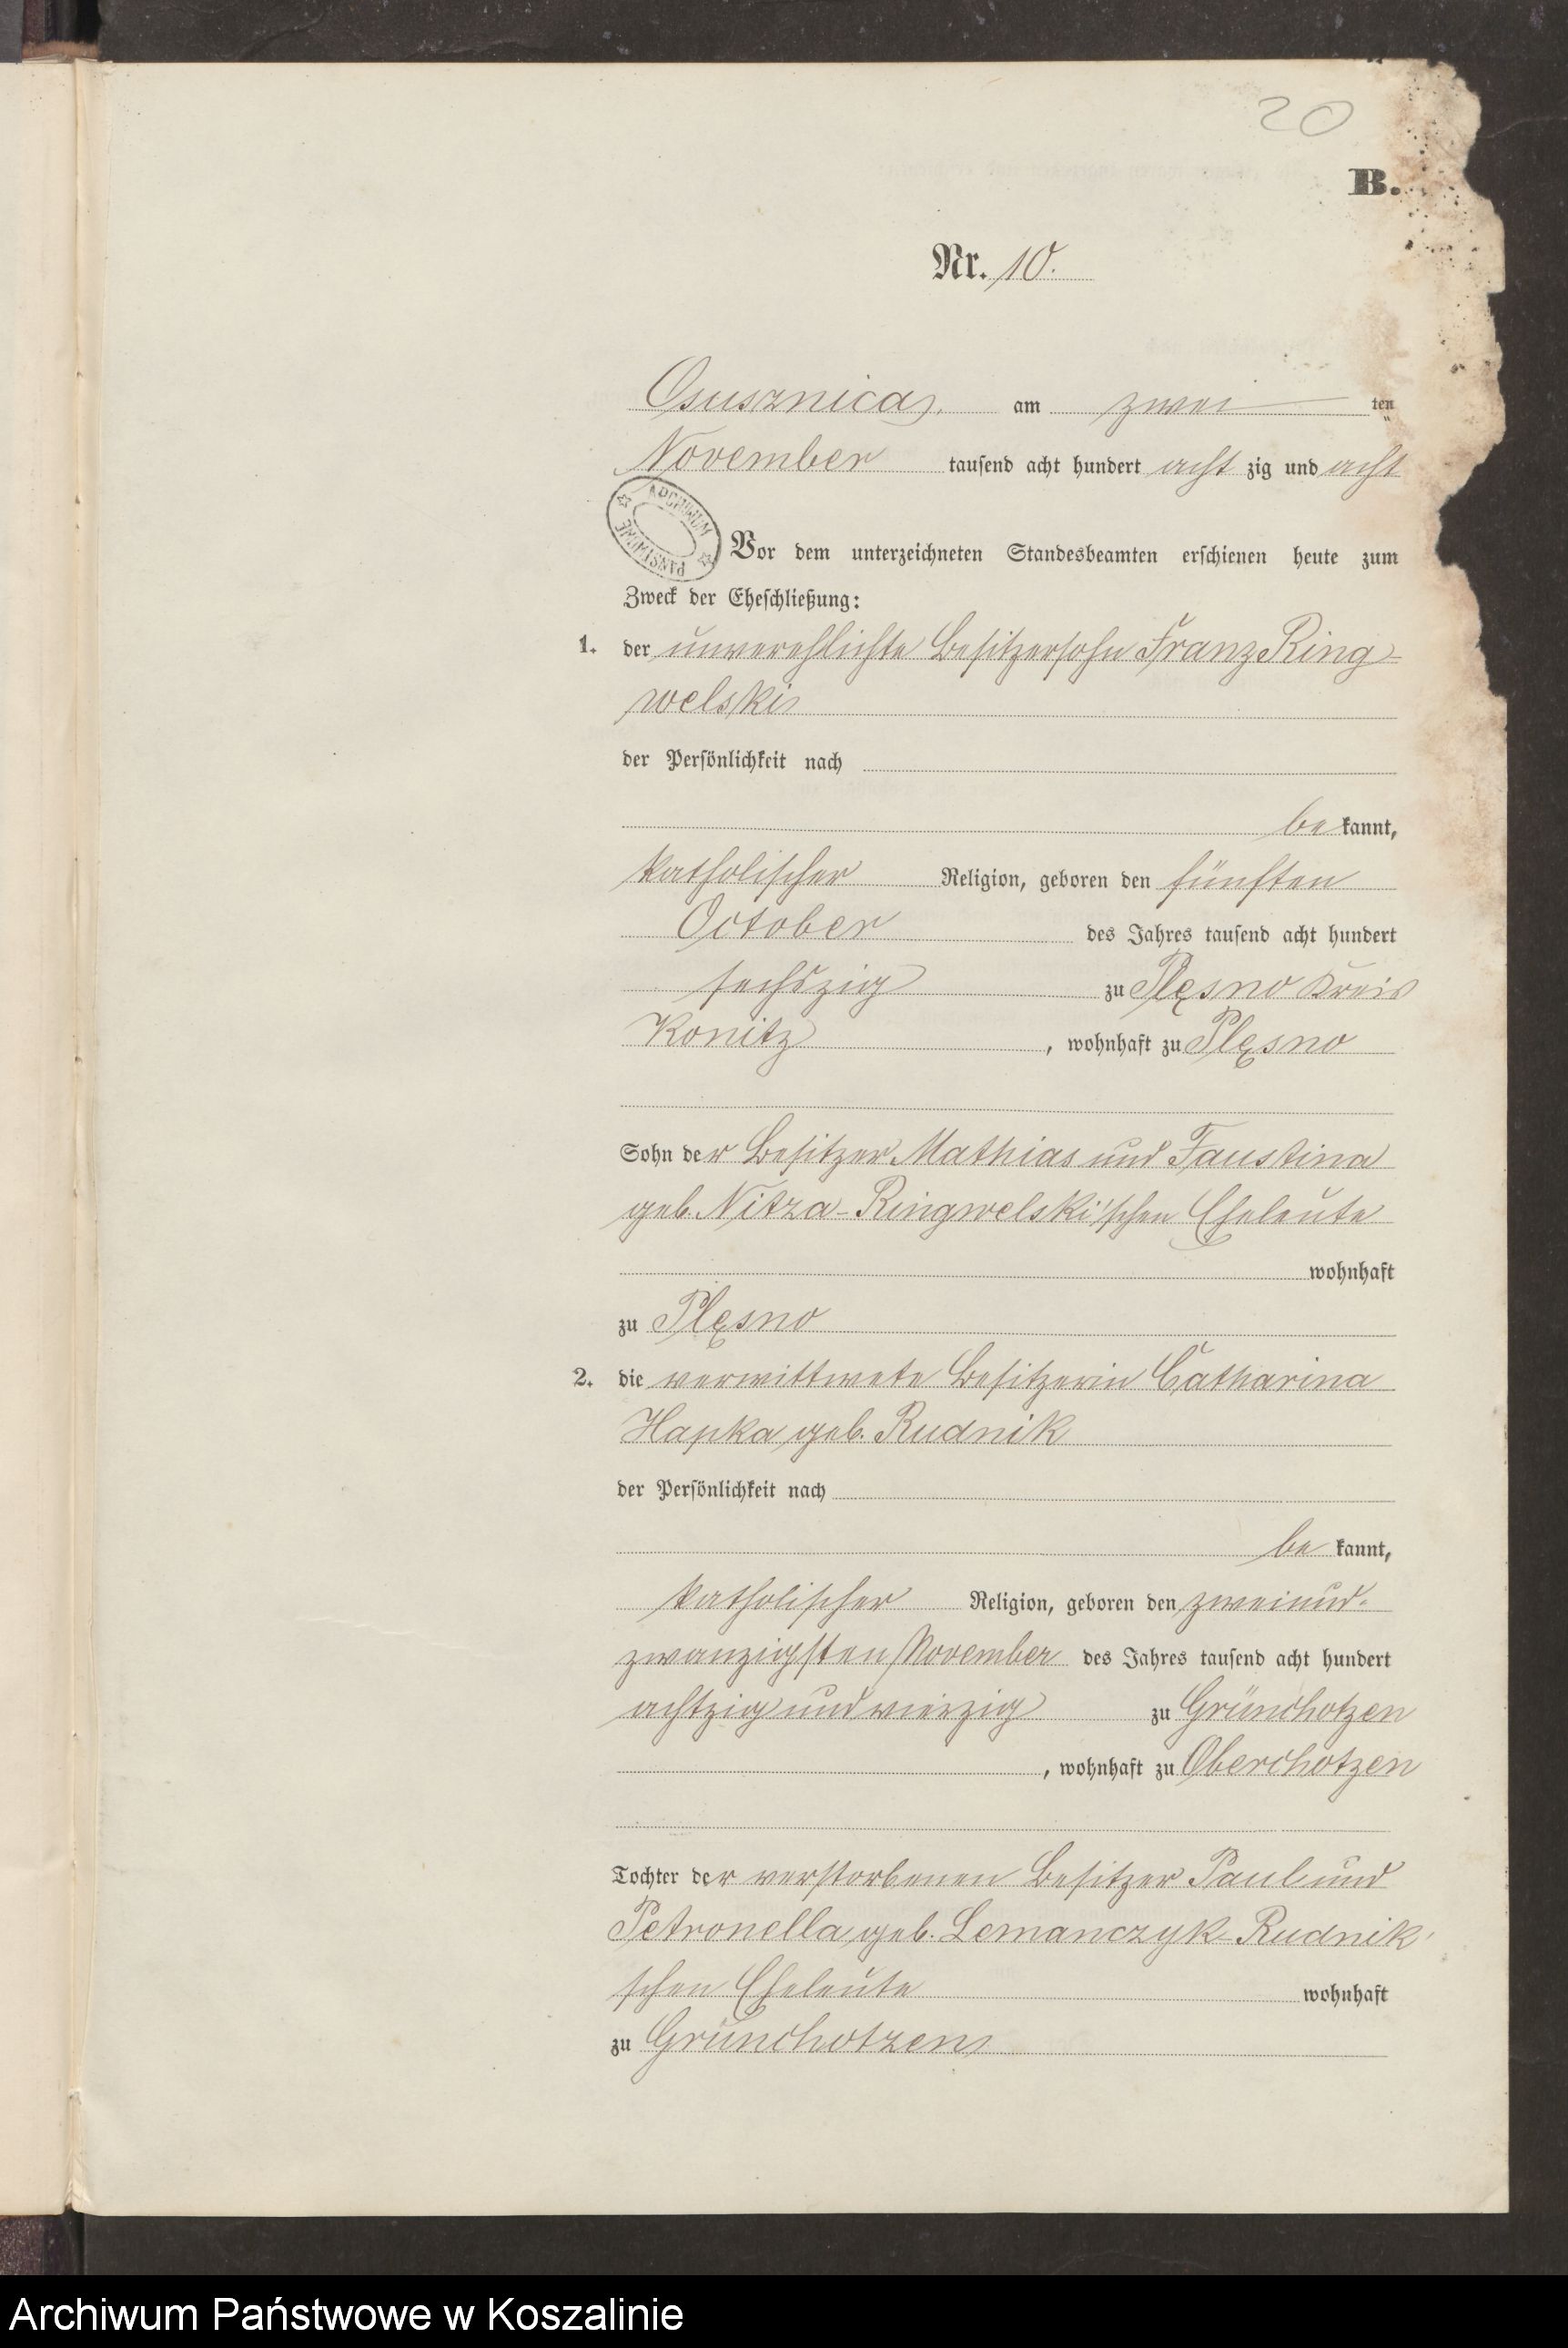 20
B.
Nr. 10.
Osusznica, am zwei ten
November tausend acht hundert acht zig und acht
ARCHIWUM PAŃSTWOWE
Vor dem unterzeichneten Standesbeamten erschienen heute zum
Zweck der Eheschließung:
1. der unverehlichte Besitzersohn Franz Ring-
welski
der Persönlichkeit nach
be kannt,
katholischer Religion, geboren den fünften
October des Jahres tausend acht hundert
sechszig zu Plęsno Kreis
Konitz, wohnhaft zu Plęsno
Sohn der Besitzer Mathias und Faustina
geb. Nitza-Ringwelski'schen Eheleute
wohnhaft
zu Plęsno
2. die verwittwete Besitzerin Catharina
Hapka geb. Rudnik
der Persönlichkeit nach
be kannt,
katholischer Religion, geboren den zweiund-
zwanzigsten November des Jahres tausend acht hundert
achtzig und vierzig zu Grünchotzen
, wohnhaft zu Oberchotzen
Tochter der verstorbenen Besitzer Paul und
Petronella geb. Lemanczyk-Rudnik'
schen Eheleute wohnhaft
zu Grünchotzen
Archiwum Państwowe w Koszalinie